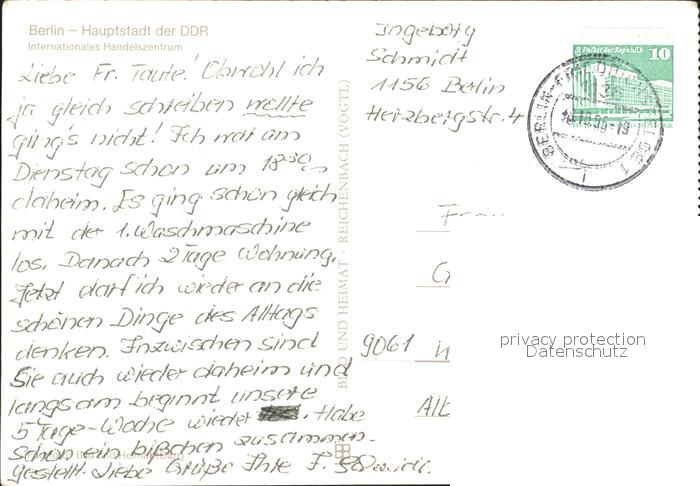 Berlin – Hauptstadt der DDR
Internationales Handelszentrum
Liebe Fr. Taute! Obwohl ich
ja gleich schreiben wollte
ging's nicht! Ich war am
Dienstag schon um 18³⁰
daheim. Es ging schon gleich
mit der 1. Waschmaschine
los. Danach 2 Tage Wohnung.
Jetzt darf ich wieder an die
schönen Dinge des Alltags
denken. Inzwischen sind
Sie auch wieder daheim und
langsam beginnt unsere
5 Tage-Woche wieder. Habe
schon ein bißchen zusammen-
gestellt. Liebe Grüße Ihre I.
BILD UND HEIMAT · REICHENBACH (VOGTL)
Ingeborg
Schmidt
1156 Berlin
Herzbergstr. 4
Palast der Republik
10
BERLIN
Fr
9061
privacy protection
Datenschutz